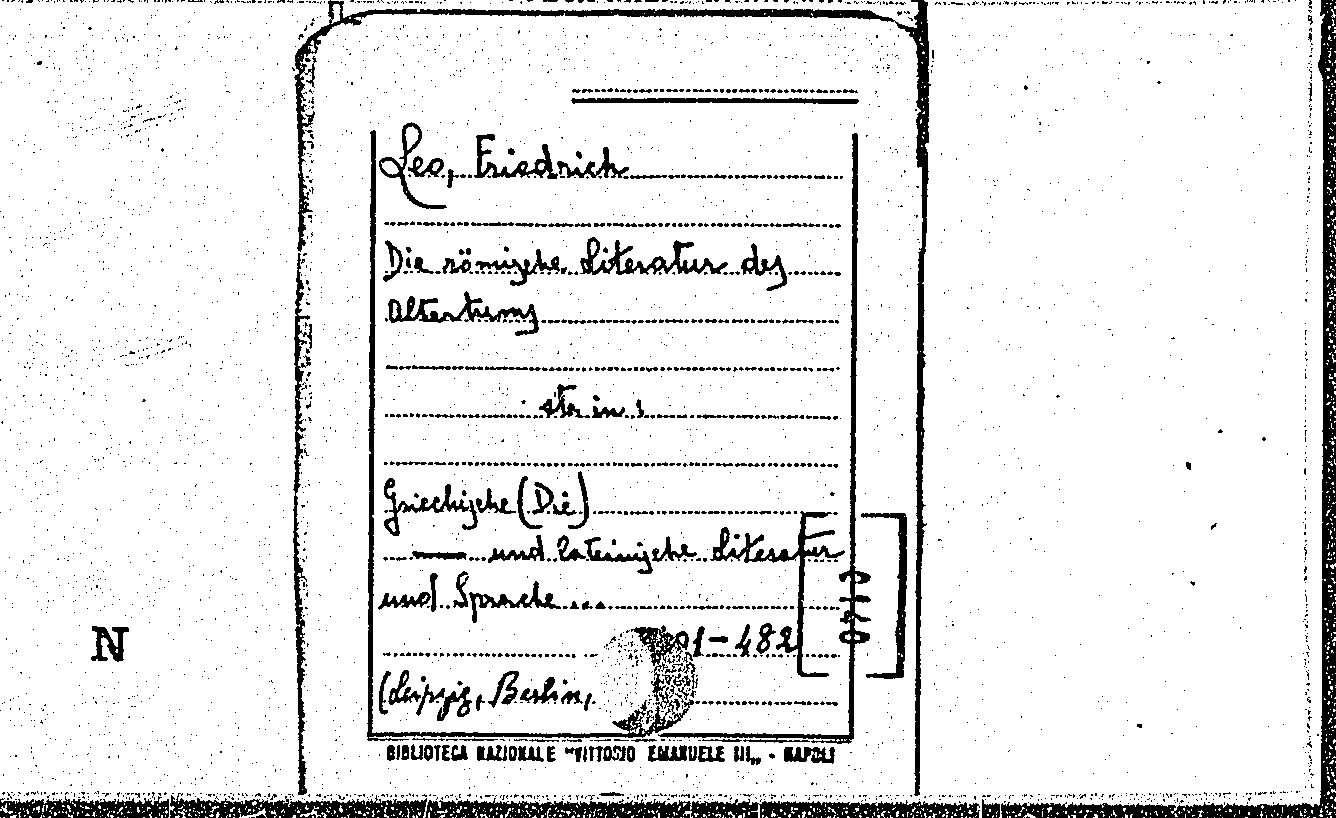 Leo, Friedrich
Die römische Literatur des
Altertums
sta in :
Griechische (Die)
— und lateinische Literatur
und Sprache ...
01-482
(Leipzig, Berlin,
N
BIBLIOTECA NAZIONALE "VITTORIO EMANUELE III„ - NAPOLI